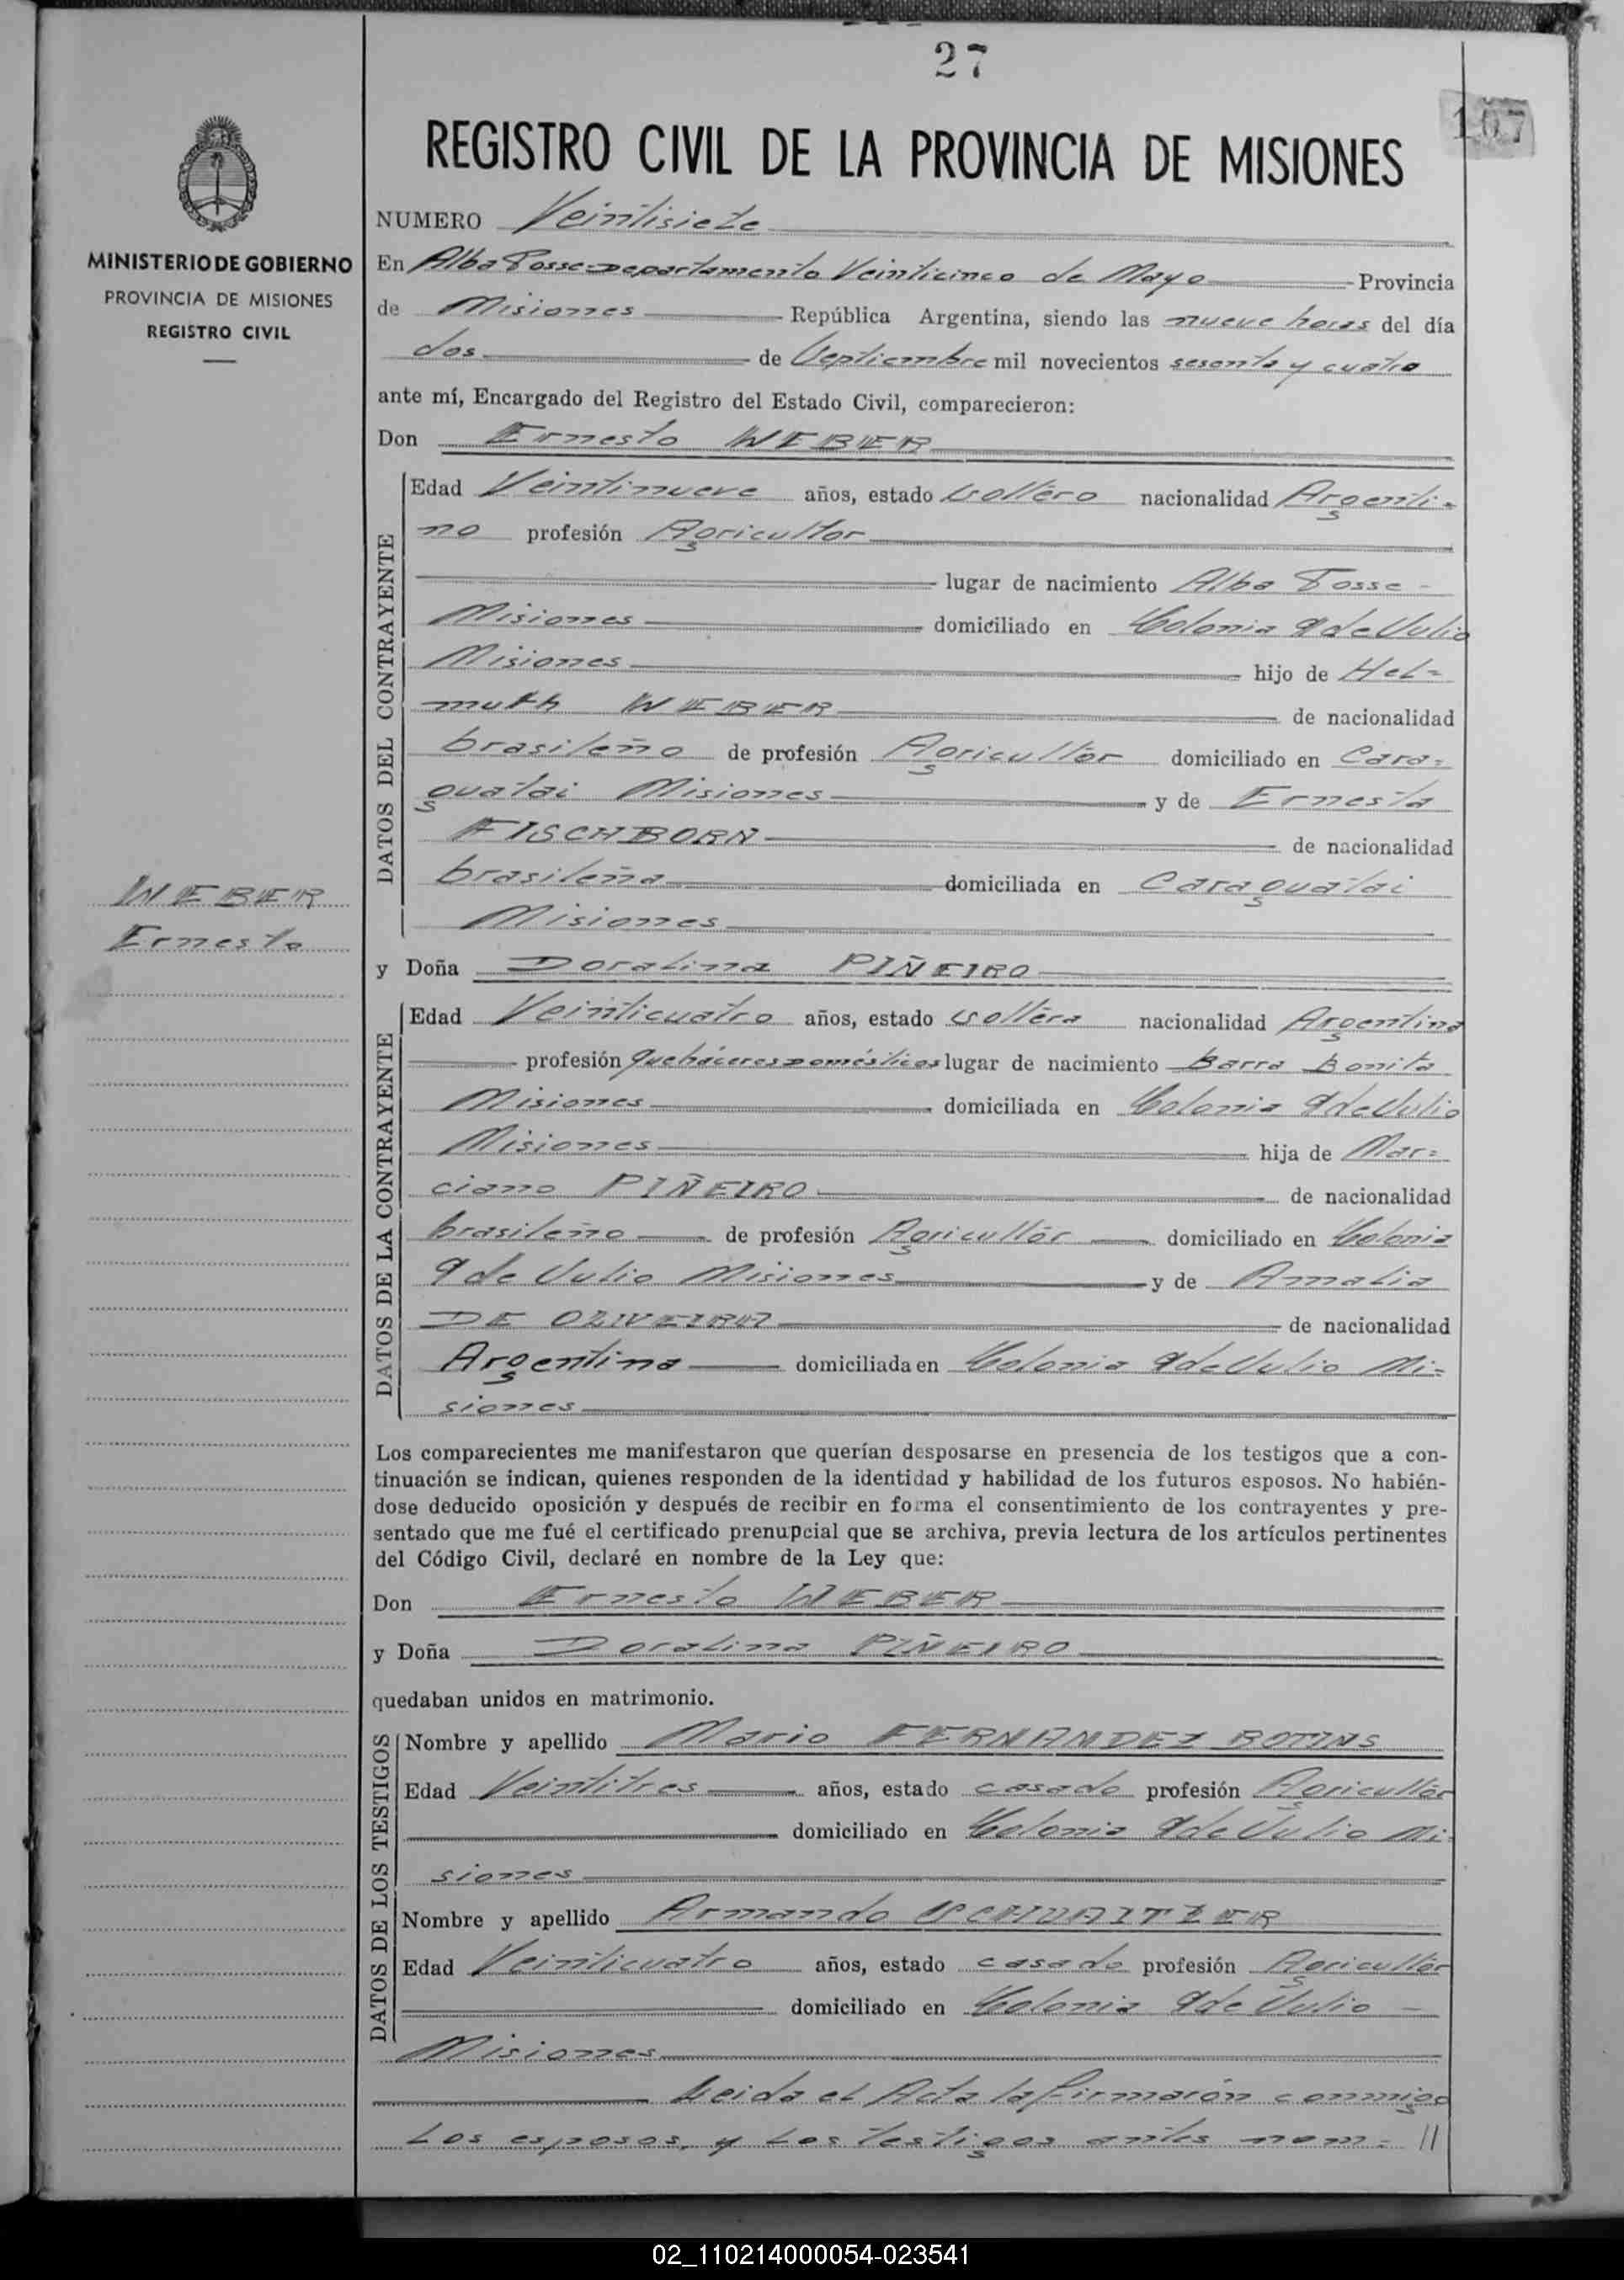 27
107
REGISTRO CIVIL DE LA PROVINCIA DE MISIONES
MINISTERIO DE GOBIERNO
PROVINCIA DE MISIONES
REGISTRO CIVIL
NUMERO Veintisiete
En Alba Posse=Departamento Veinticinco de Mayo Provincia
de Misiones República Argentina, siendo las nueve horas del día
dos de Septiembre mil novecientos sesenta y cuatro
ante mí, Encargado del Registro del Estado Civil, comparecieron:
Don Ernesto WEBER
DATOS DEL CONTRAYENTE
Edad Veintinueve años, estado soltero nacionalidad Argenti=
no profesión Agricultor
lugar de nacimiento Alba Posse -
Misiones domiciliado en Colonia 9 de Julio
Misiones hijo de Hel=
muth WEBER de nacionalidad
brasileño de profesión Agricultor domiciliado en Cara=
guatai Misiones y de Ernesta
FISCHBORN de nacionalidad
brasileña domiciliada en Caraguatai
Misiones
WEBER
Ernesto
y Doña Doralina PIÑEIRO
DATOS DE LA CONTRAYENTE
Edad Veinticuatro años, estado soltera nacionalidad Argentina
profesión Quehaceres Domésticos lugar de nacimiento Barra Bonita
Misiones domiciliada en Colonia 9 de Julio
Misiones hija de Mar=
ciano PIÑEIRO de nacionalidad
brasileño de profesión Agricultor domiciliado en Colonia
9 de Julio Misiones y de Amalia
DE OLIVEIRA de nacionalidad
Argentina domiciliada en Colonia 9 de Julio Mi=
siones
Los comparecientes me manifestaron que querían desposarse en presencia de los testigos que a con-
tinuación se indican, quienes responden de la identidad y habilidad de los futuros esposos. No habién-
dose deducido oposición y después de recibir en forma el consentimiento de los contrayentes y pre-
sentado que me fué el certificado prenupcial que se archiva, previa lectura de los artículos pertinentes
del Código Civil, declaré en nombre de la Ley que:
Don Ernesto WEBER
y Doña Doralina PIÑEIRO
quedaban unidos en matrimonio.
DATOS DE LOS TESTIGOS
Nombre y apellido Mario FERNANDEZ
Edad Veintitres años, estado casado profesión Agricultor
domiciliado en Colonia 9 de Julio Mi=
siones
Nombre y apellido Armando
Edad Veinticuatro años, estado casado profesión Agricultor
domiciliado en Colonia 9 de Julio -
Misiones
Leida el Acta la firmarón conmigo
Los esposos, y Los testigos antes nom= //
02_110214000054-023541